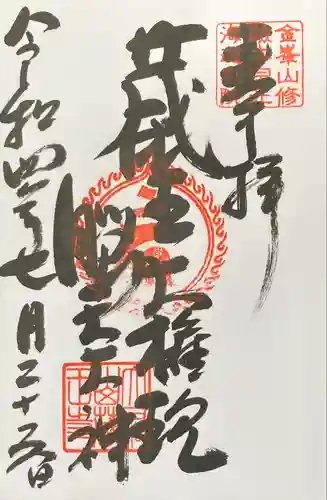 金峯山修
奉拝
蔵王大権現
勝手大神
令和四年七月二十五日